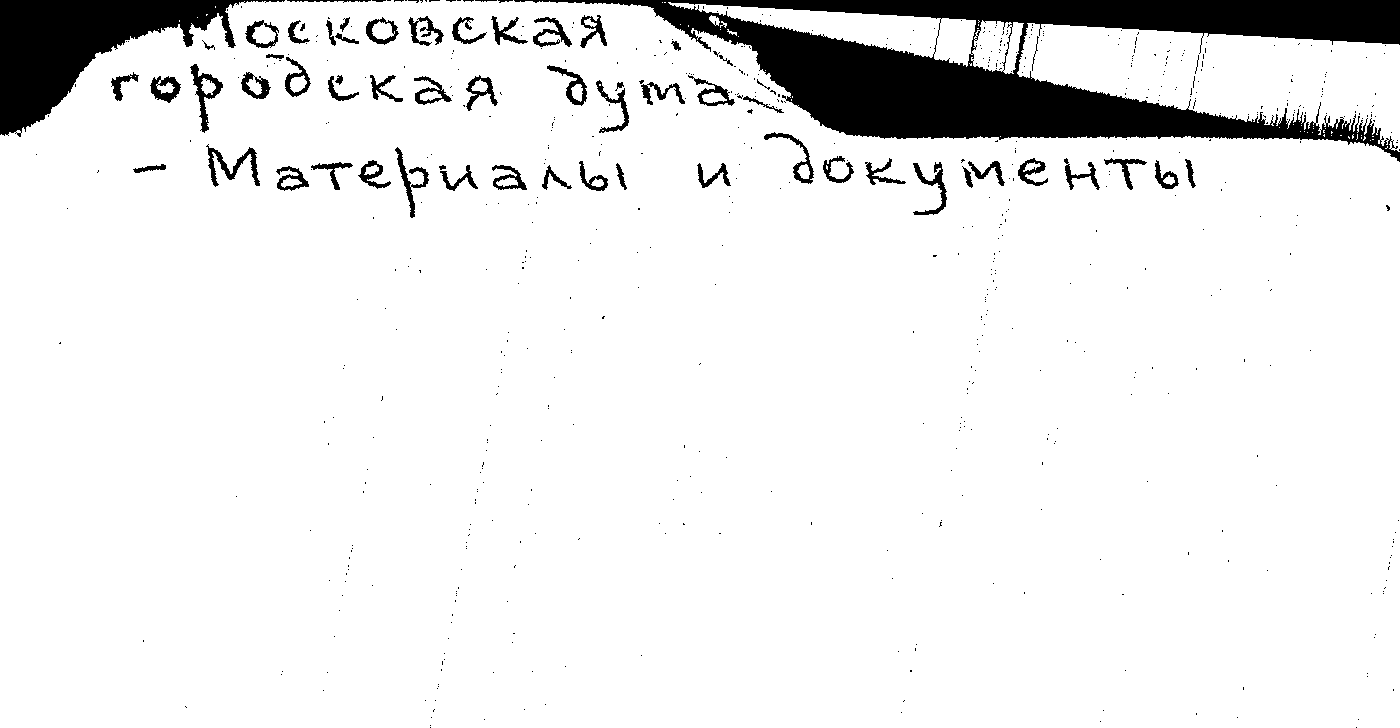 Московская
городская дума
- Материалы и документы